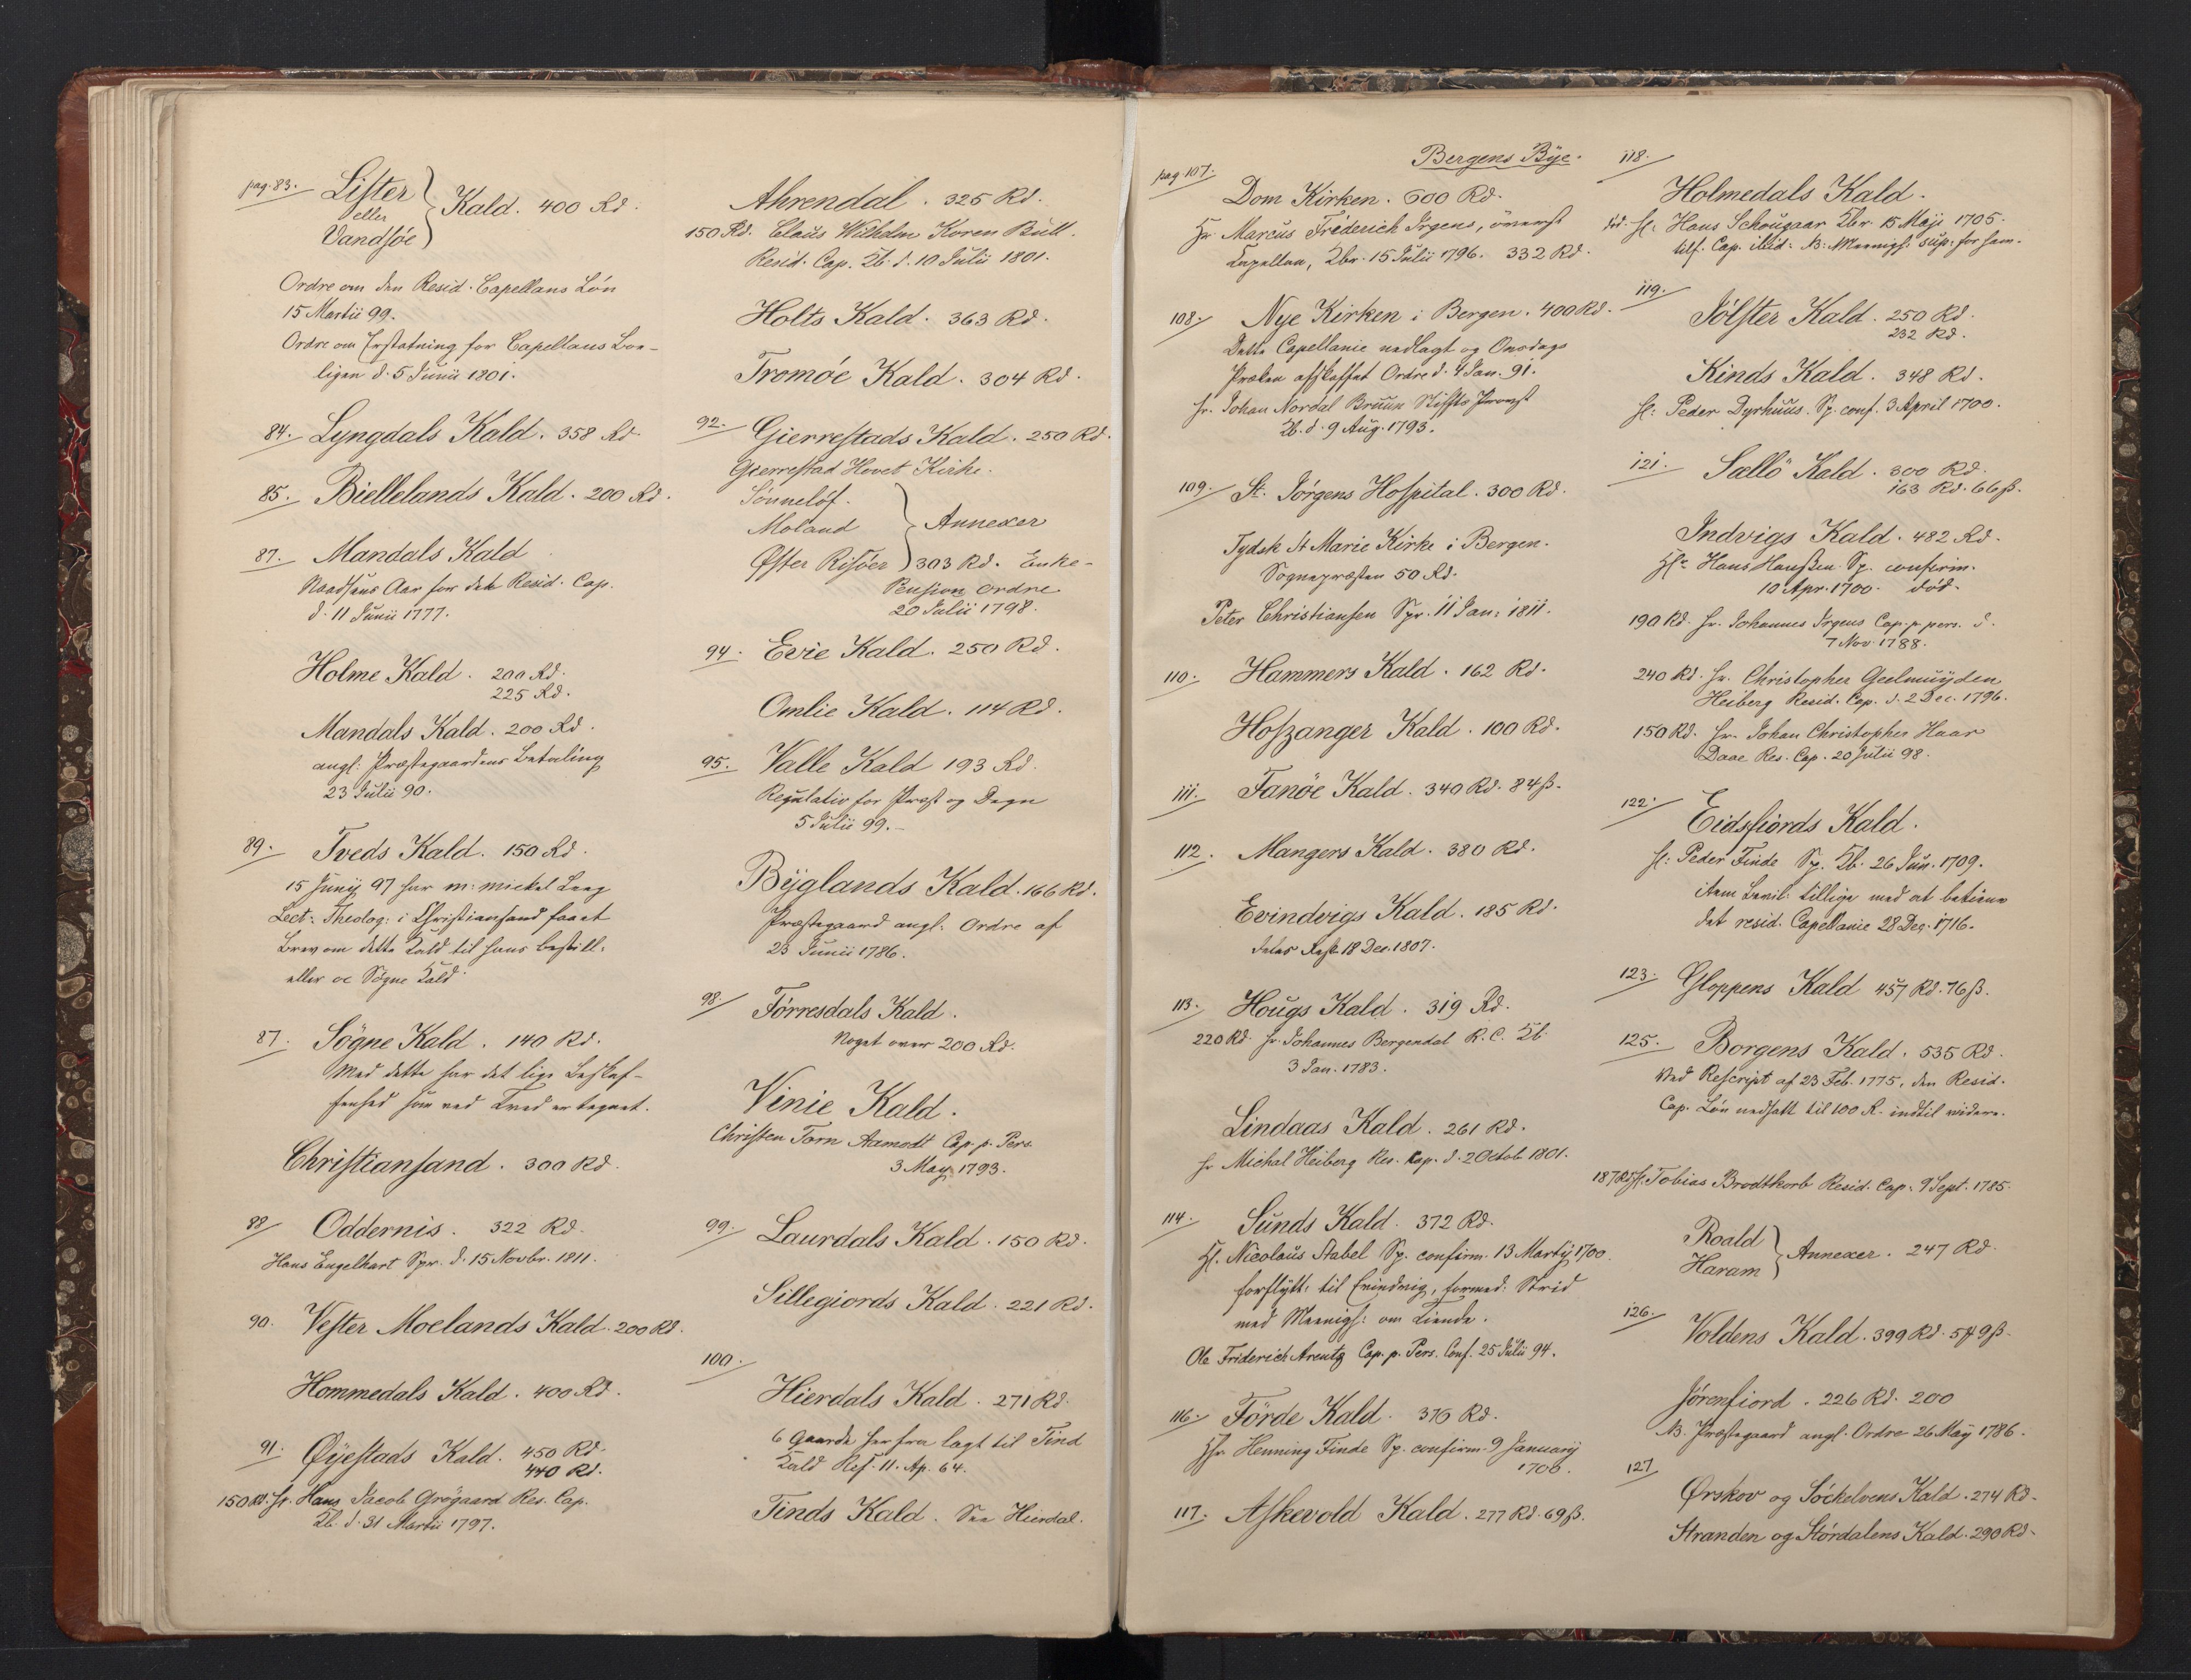 pag. 83. Lister
eller
Vandsøe
Kald. 400 Rd.
Ordre om den Resid. Capellans Løn
15 Martii 99.
Ordre om Erstatning for Capellans Boe-
ligen d. 5 Junii 1801.
84. Lyngdals Kald. 358 Rd.
85. Biellelands Kald. 200 Rd.
87. Mandals Kald
Naadsens Aar for det Resid. Cap.
d. 11 Junii 1777.
Holme Kald. 200 Rd.
225 Rd.
Mandals Kald. 200 Rd.
angl: Præstegaardens Betaling
23 Julii 90.
89. Tveds Kald. 150 Rd.
15 Junij 97 har m: Mickel Leeg
Lect: Theolog: i Christiansand faaet
Brev om dette Kald til hans bestill:
eller oc Søgne Kald.
87. Søgne Kald. 140 Rd.
Med dette har det lige Beskaf-
fenhed som ved Tved er tegnet.
Christiansand. 300 Rd.
88 Oddernis. 322 Rd.
Hans Engelhart Spr. d. 15 Novbr. 1811.
90. Vester Moelands Kald. 200 Rd.
Hommedals Kald. 400 Rd.
91. Øyestads Kald. 450 Rd.
440 Rd.
150 Rd. hr. Hans Jacob Grøgaard Res. Cap.
Kb. d. 31 Martii 1797.
Ahrendal. 325 Rd.
150 Rd. Claus Wilhelm Koren Bull.
Resid. Cap. Kb. d. 10 Julii 1801.
Holts Kald. 363 Rd.
Tromøe Kald. 304 Rd.
92. Gierrestads Kald. 250 Rd.
Gierrestad Hovet Kirke.
Sønneløf.
Moland
Annexer
Øster Risøer 303 Rd. Enke-
Pension Ordre
20 Julii 1798.
94. Evie Kald. 250 Rd.
Omlie Kald. 114 Rd.
95. Valle Kald 193 Rd.
Regulativ for Præst og Degn
5 Julii 99.
Byglands Kald. 166 Rd.
Præstegaard angl. Ordre af
23 Junii 1786.
98. Førresdals Kald.
Noget over 200 Rd.
Vinie Kald.
Christen Torn Aamodt Cap. p. Pers.
3 May 1793.
99. Laurdals Kald. 150 Rd.
Sillegiords Kald. 221 Rd.
100.
Hierdals Kald. 271 Rd.
6 Gaarde herfra lagt til Tind
Kald Res. 11. Ap. 64.
Tinds Kald. See Hierdal.
Bergens Bye.
pag. 107.
Dom Kirken. 600 Rd.
Hr. Marcus Friderich Irgens, øverst
Capellan, Kbr. 15 Julii 1796. 332 Rd.
108. Nye Kirken i Bergen. 400 Rd.
Dette Capellanie nedlagt og Onsdags
Præken afskaffet Ordre d. 4 Jan. 91.
hr. Johan Nordal Bruun Stiffts Provst
Kb. d. 9 Aug. 1793.
109. St. Jørgens Hospital. 300 Rd.
Tydsk St Marie Kirke i Bergen.
Sognepræsten 50 Rd.
Peter Christiansen Spr. 11 Jan: 1811.
110. Hammers Kald. 162 Rd.
Hoszanger Kald. 100 Rd.
111. Fanøe Kald. 340 Rd. 84 ß.
112. Mangers Kald. 380 Rd.
Evindvigs Kald. 185 Rd.
18 Dec. 1807.
113. Hougs Kald. 319 Rd.
220 Rd. hr. Johannes Bergendal R. C. Kb.
3 Jan. 1783.
Lindaas Kald. 261 Rd.
hr Michal Heiberg Res. Kap. d. 2 Octob 1801.
114. Sunds Kald. 372 Rd.
Hl. Nicolaus Stabel Sp. confirm. 13 Martij 1700.
forflytt: til Evindvig, formed: Strid
med Meenigh: om Tiende.
Ole Friderich Arentz Cap. p. Pers. Conf. 25 Julii 94.
116. Førde Kald. 376 Rd.
Hr Henning Finde Sp. confirm. 9 Januarij
1706.
117. Askevold Kald. 277 Rd. 69 ß.
118.
Holmedals Kald.
død. hl: Hans Schougaar Kbr. 15 Maji 1705.
tilf. Cap. ibid: N: Meenigh. sup: for ham.
119.
Jølster Kald. 250 Rd.
232 Rd.
Kinds Kald. 348 Rd.
hl: Peder Dyrhuus. Sp. conf. 3 April 1700.
121. Sællö Kald. 300 Rd.
163 Rd. 66 ß.
Indvigs Kald. 482 Rd.
Hr Hans Hanssen Sp. confirm.
10 Apr. 1700. død.
190 Rd. hr. Johannes Irgens Cap. p. pers. d.
7 Nov. 1788.
240 Rd. hr. Christopher Geelmuyden
Heiberg Resid. Cap. d. 2 Dec. 1796.
150 Rd. hr. Johan Christopher Haar
Daae Res. Cap. 20 Julii 98.
122.
Eidsfiords Kald.
hl: Peder Finde Sp. Kb. 26 Jun. 1709.
item bevil: tillige med at betiene
det resid. Capellanie 28 Dec. 1716.
123. Gloppens Kald 457 Rd. 76 ß.
125. Borgens Kald. 535 Rd.
Ved Rescript af 23 Feb. 1775, den Resid.
Cap. Løn nedsatt til 100 R. indtil videre.
187 Rd hr. Tobias Brodtkorb Resid. Cap. 9 Sept. 1785.
Roald
Haram
Annexer. 247 Rd.
126.
Voldens Kald. 399 Rd. 549 ß.
Jørenfiord. 226 Rd. 200
N. Præstegaard angl. Ordre 26 May 1786.
127
Ørskov og Søckelvens Kald. 274 Rd.
Stranden og Stordalens Kald. 290 Rd.